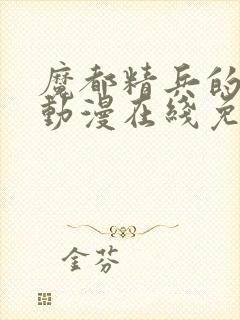 魔都精兵的
動漫在綫免
金芬